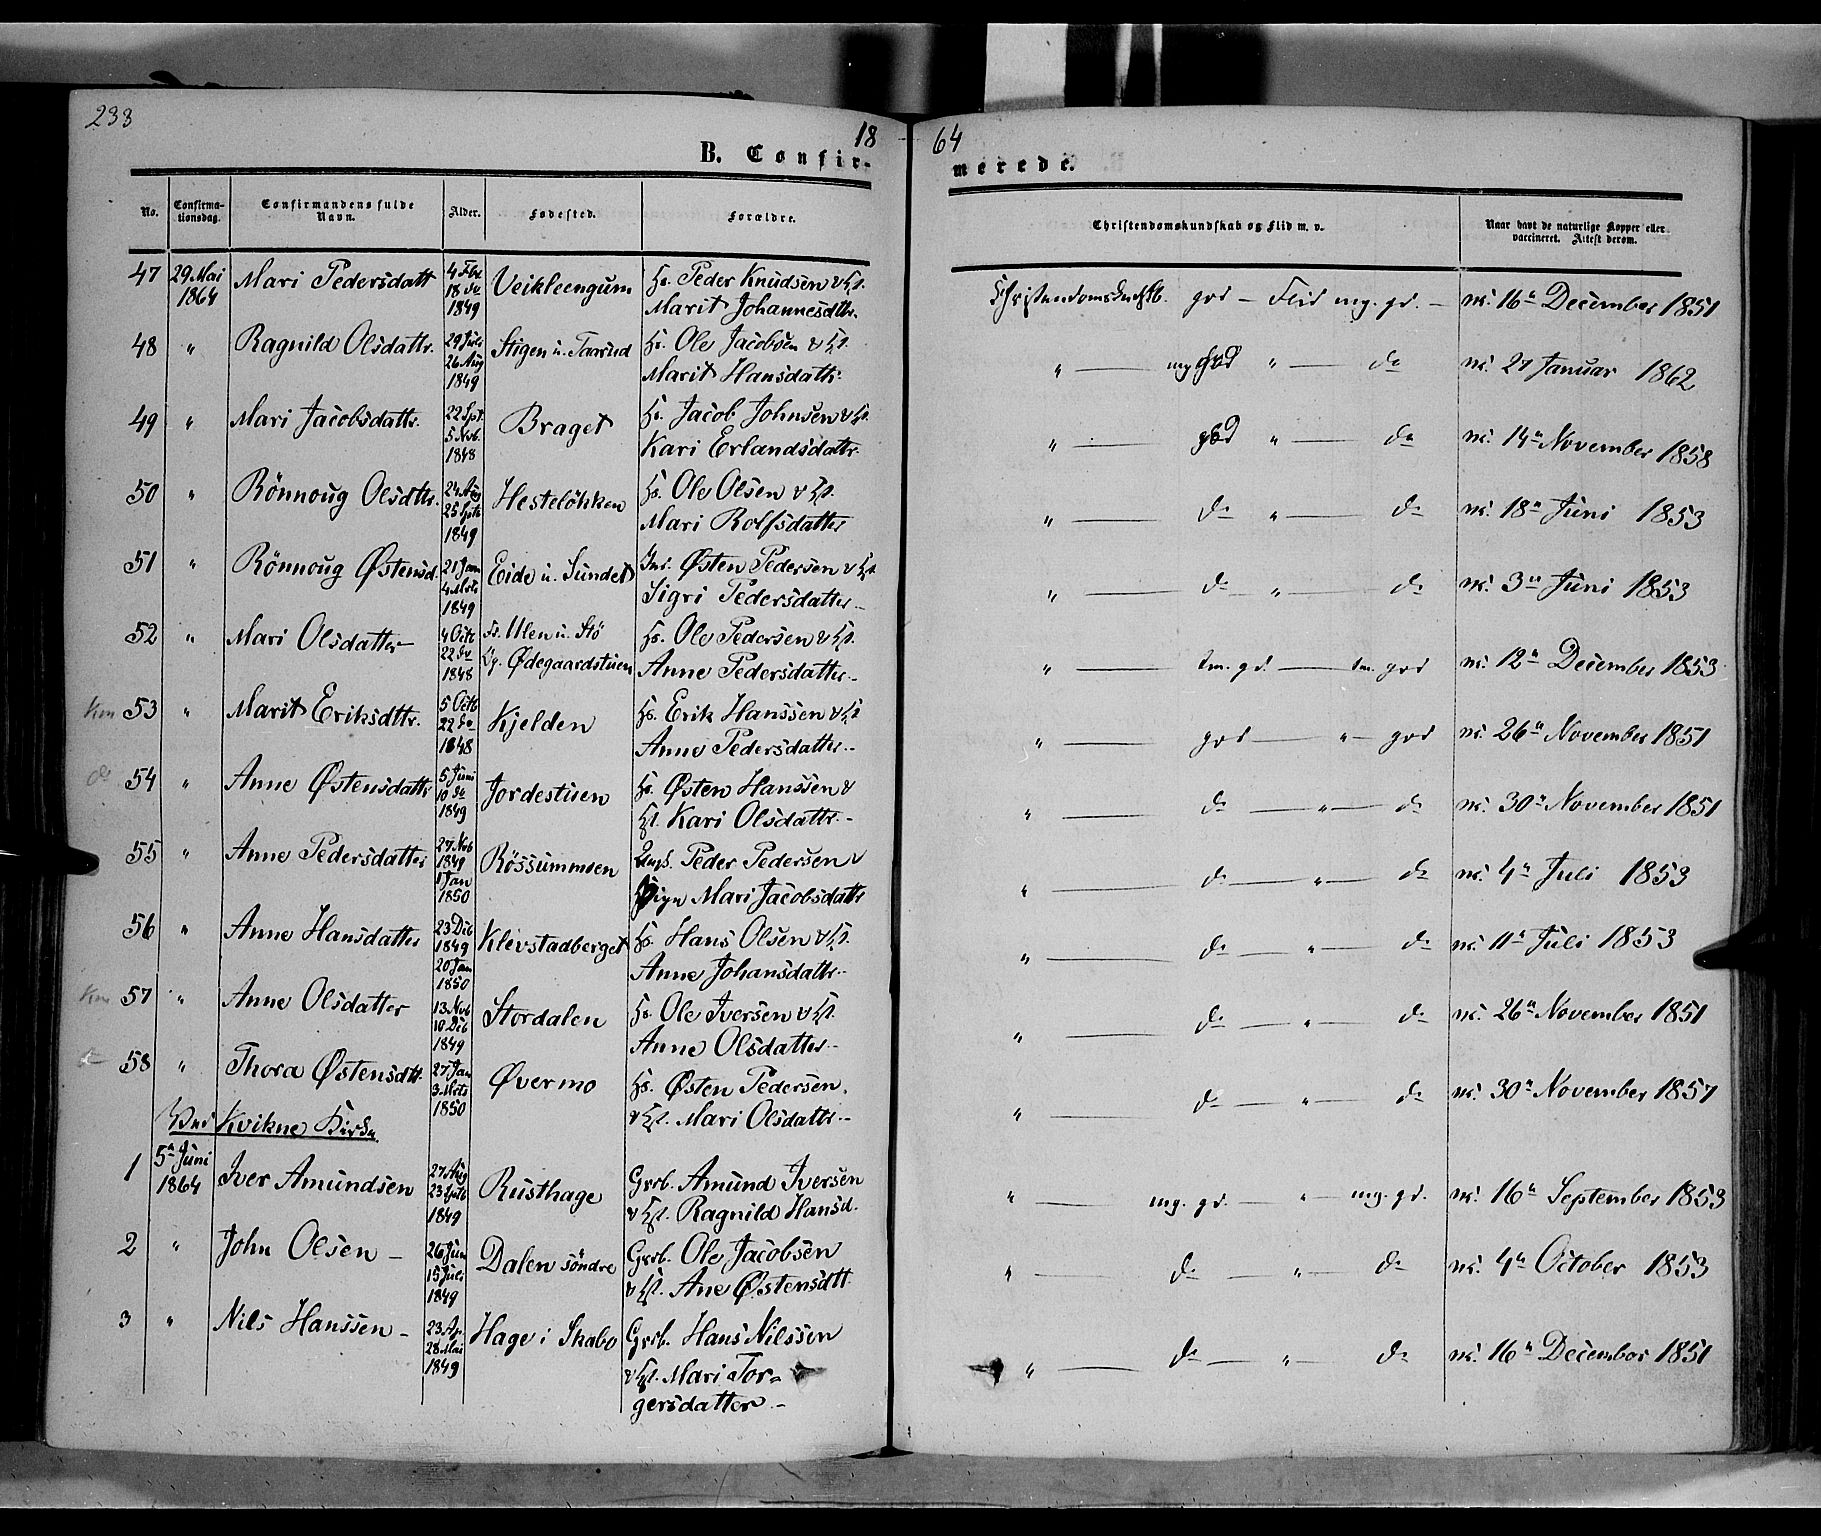 233
18
64
B. Confir-
merede.
No. Confirma-tionsdag. Confirmandens fulde Navn. Alder. Fødested. Forældre. Christendomskundskab og Flid m. v. Naar havt de naturlige Kopper eller vaccineret. Attest derom.
47 29 Mai 1864 Mari Pedersdatt 4 Fbr. 18 do 1849 Veikleengum Hs. Peder Knudsen & Hst. Marit Johannesdttr. Christendomskndskb. god — Flid mg. gd. — vc. 16de December 1851
48 " Ragnild Olsdattr. 29 Juli 26 Aug 1849 Stigen u. Taarud Hs. Ole Jacobsen & Hst. Marit Hansdattr. " — mg god " — do vc. 27 Januar 1862
49 " Mari Jacobsdattr. 22 Spt. 5 Nvb. 1848 Braget Hs. Jacob Johnsen & Hst. Kari Erlandsdattr. " — god " — do vc. 14de November 1858
50 " Rönnoug Olsdttr. 24 Aug 25 Sptb 1849 Hestelökken Hs. Ole Olsen & Hst. Mari Rolfsdatter " — do " — do vc. 18de Juni 1853
51 " Rönnoug Østensd. 21 Jan 4 Mrts 1849 Eide u. Sundet Inr. Østen Pedersen & Hst. Sigri Pedersdatter — " — do — " — do vc. 3de Juni 1853
52 " Mari Olsdatter 4 Octb 22 do 1848 Fs. Ulen u. Stö Og. Ødegaardstuen Hs. Ole Pedersen & Hst. Anne Pedersdatter — " — tm. gd. — tm. god vc. 12de December 1853
Km 53 " Marit Eriksdttr. 5 Octb 22 do 1848 Kjelden Hs. Erik Hanssen & Hst. Anne Pedersdatter — " — god — " — god vc. 26de November 1851
do 54 " Anne Østensdattr 5 Juni 10 do 1849 Jordestuen Hs. Østen Hanssen & Hst. Kari Olsdattr. — " — do — " — do vc. 30de November 1851
55 " Anne Pedersdatter 27 Nvb 1849 1 Jan 1850 Rössummoen Ungk. Peder Pedersen & Pign Mari Jacobsdattr " — do — " — do vc. 4de Juli 1853
56 " Anne Hansdatter 23 Dcb 1849 20 Jan 1850 Klevstadberget Hs. Hans Olsen & Hst. Anne Johansdattr. — " — do — " — do vc. 11de Juli 1853
Km 57 " Anne Olsdatter 13 Nvb 10 Dcb 1849 Stordalen Hs. Ole Iversen & Hst. Anne Olsdatter — " — do — " — do vc. 26de November 1851
do 58 " Thora Østensdtt. 27 Jan 3 Mrts 1850 Øvermo Hs. Østen Pedersen & Hst. Mari Olsdattr. — " — do — " — do vc. 30de November 1857
Ved Kvikne Kirke
1 5de Juni 1864 Iver Amundsen 27 Aug 23 Sptb 1849 Rusthage Grb. Amund Iversen & Hst. Ragnild Hansd. " — mg. gd. — " — mg. gd. vc. 16de September 1853
2 " John Olsen — 26 Juni 15 Juli 1849 Dalen söndre Grb. Ole Jacobsen & Hst. Ane Østensdtt. " — do — " — do vc. 4de October 1853
3 " Nils Hanssen — 23 Ap. 28 Mai 1849 Hage i Skabo Grb. Hans Nilssen & Hst. Mari Tor-gersdatter — " — do — " — do vc. 16de December 1851